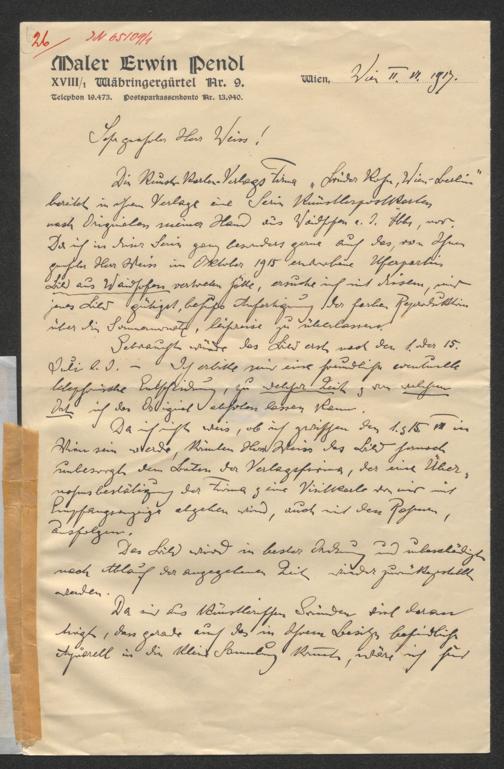 26
JN 65109/1
Maler Erwin Pendl
XVIII/1 Währingergürtel Nr. 9.
Telephon 19.473. Postsparkassenkonto Nr. 13.940.
Wien, Wien 11. VI. 1917.
Sehr geehrter Herr Weiss!
Die Kunst-Karten-Verlags Firma „Brüder Kohn, Wien-Berlin"
bereitet in ihrem Verlage eine Serie Künstlerpostkarten
nach Originalen meiner Hand aus Waidhofen a. d. Ybbs, vor.
Da ich in dieser Serie ganz besonders gerne auch das, von Ihnen
geehrter Herr Weiss im Oktober 1915 Uferpartie
Bild aus Waidhofen vertreten hätte, ersuche ich mit diesem, mir
jenes Bild gütigst, behufs Anfertigung der farben Reproduktion
über die Sommermonate, leihweise zu überlassen.
Gebraucht würde das Bild erst nach dem 1. bis 15.
Juli l. J. – Ich erbitte mir eine freundliche eventuelle
telephonische Entscheidung, zu welcher Zeit & von welchem
Ort ich das Original abholen lassen kann.
Da ich nicht weis, ob ich zwischen dem 1. & 15 VII in
Wien sein werde, könnten Herr Weiss das Bild
unbesorgt dem Boten der Verlagsfirma, der eine Über-
nahmsbestätigung der Firma & eine Visitkarte von mir mit
Empfangsanzeige abgeben wird, auch mit dem Rahmen,
ausfolgen.
Das Bild wird in bester Ordnung und unbeschädigt
nach Ablauf der angegebenen Zeit wieder zurückgestellt
werden.
Da mir aus künstlerischen Gründen viel daran
liegt, dass gerade auch das in Ihrem Besitze befindliche
Aquarell in die kleine Sammlung kommt, wäre ich für